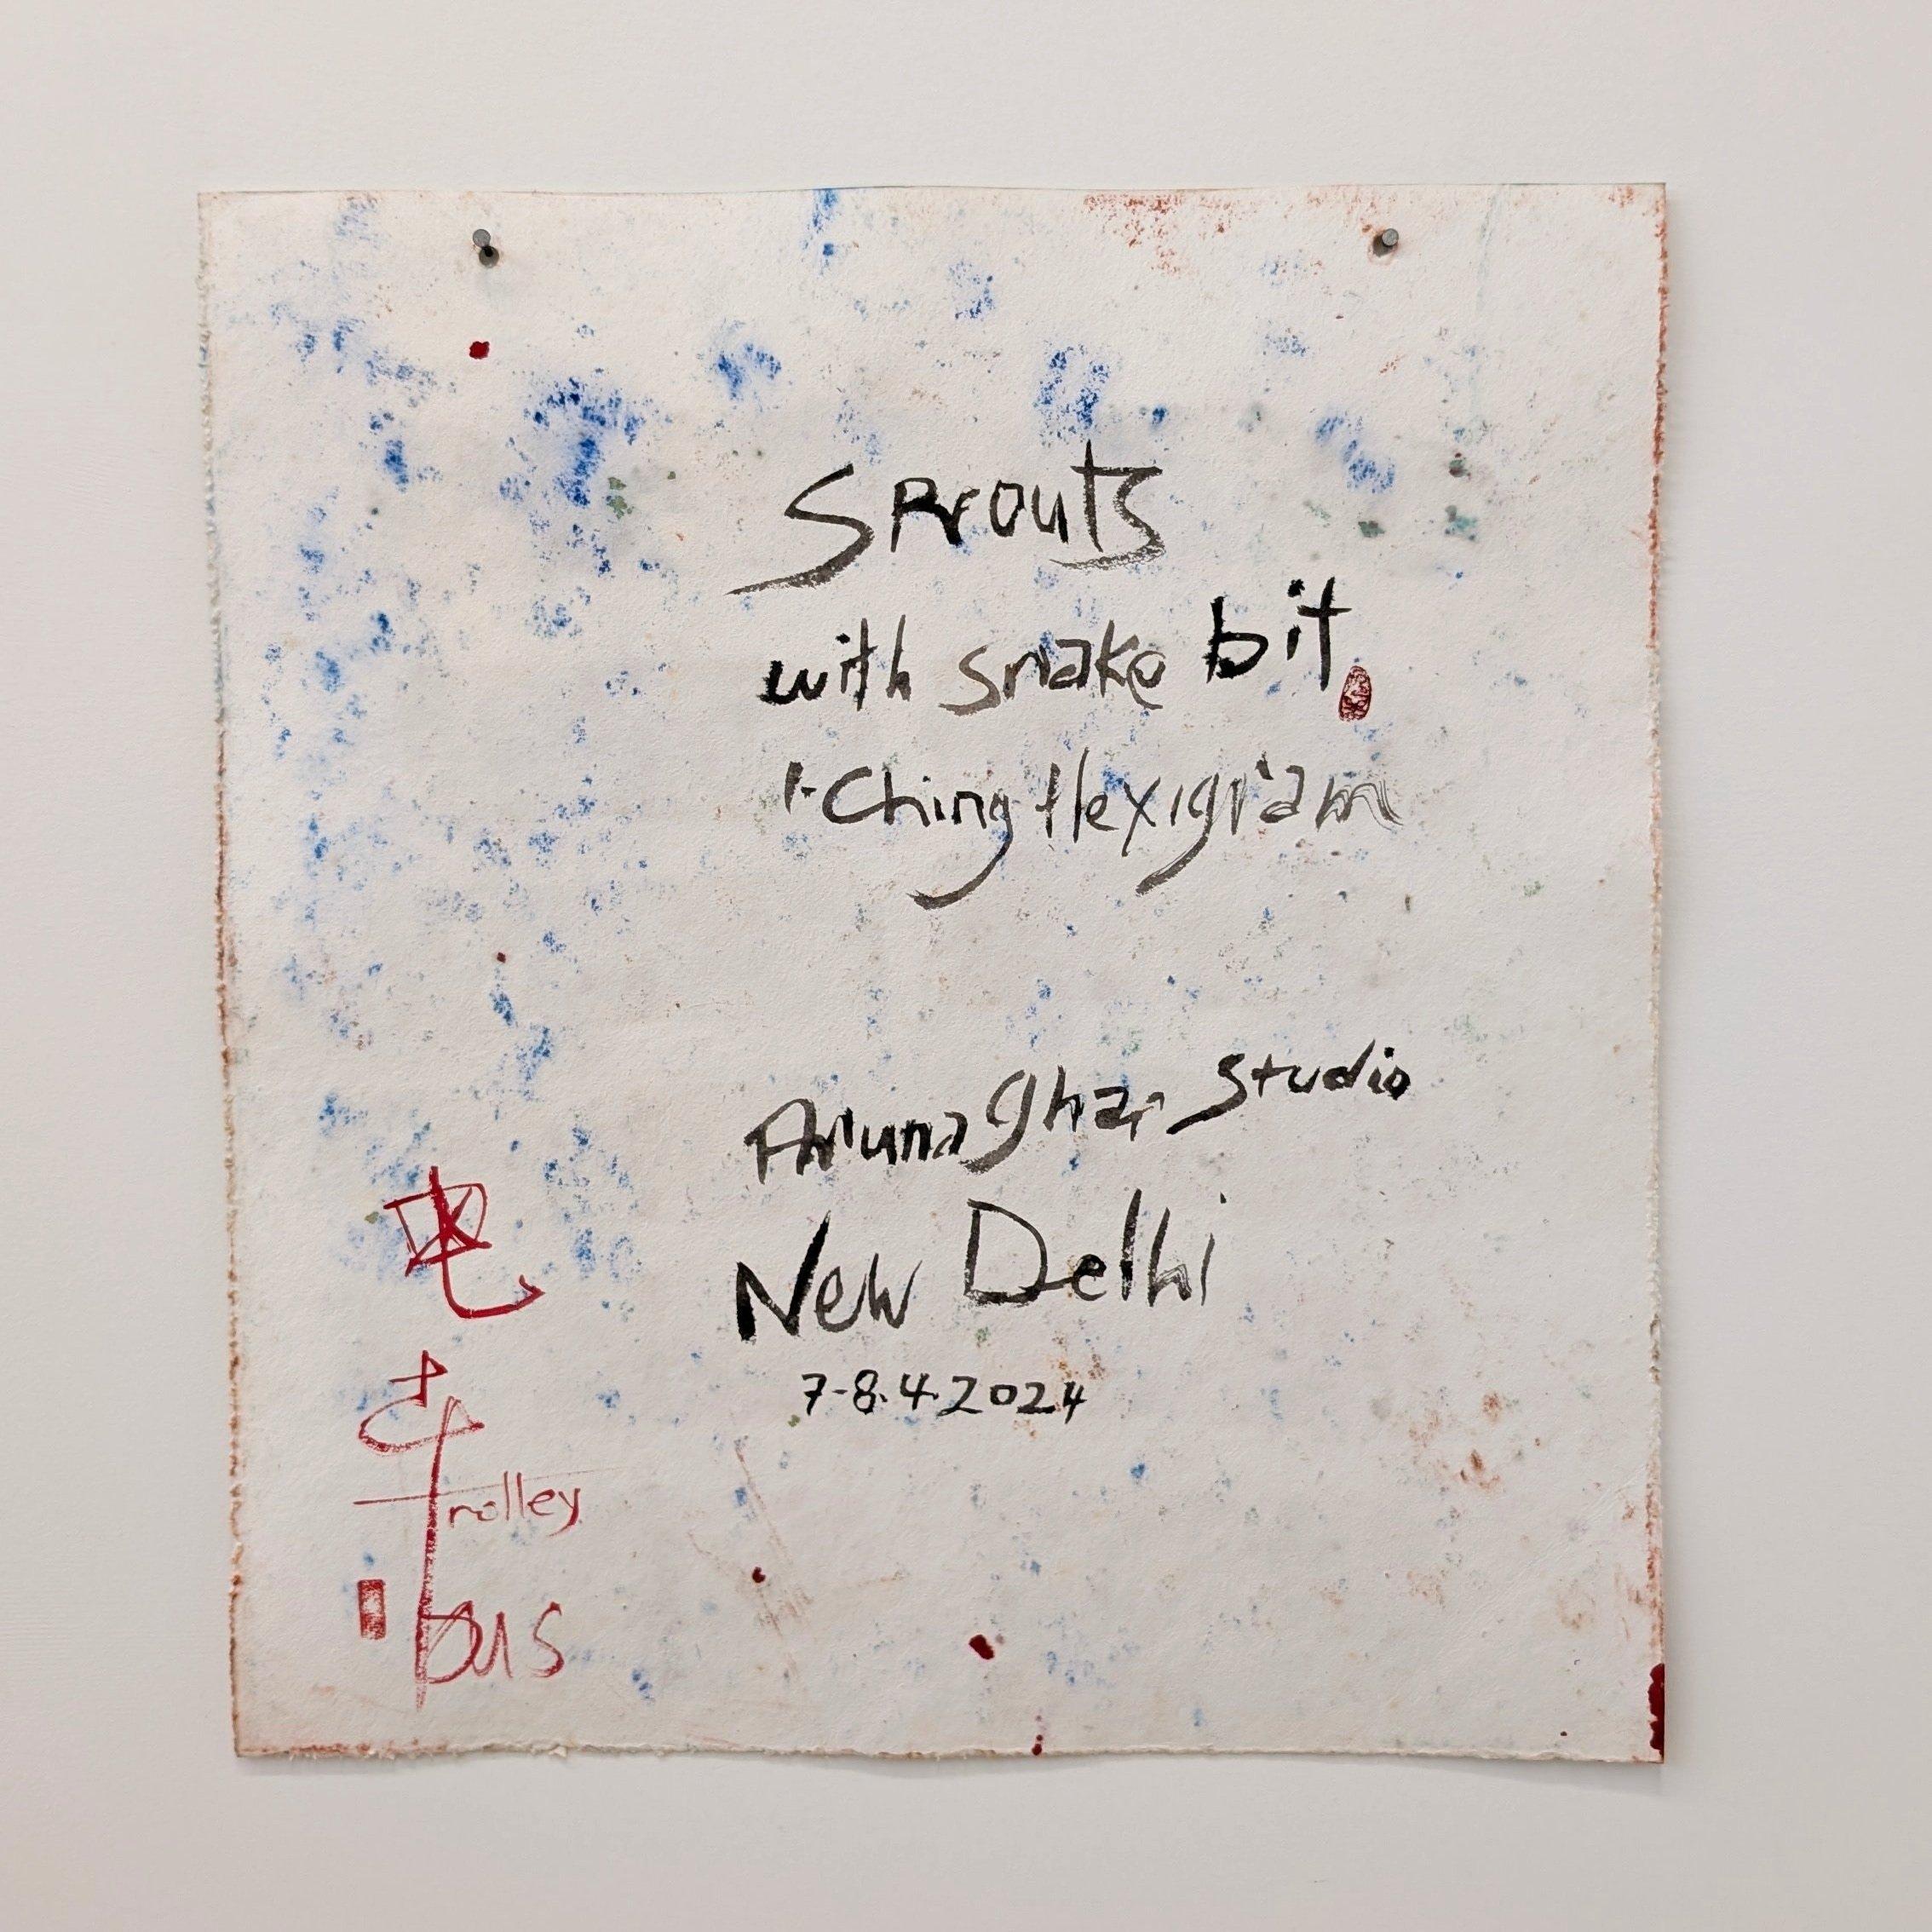 Sprouts
with snake bit
I-Ching Hexigram
Arunaghar Studio
New Delhi
7-8.4.2024
电
车
Trolley
bus